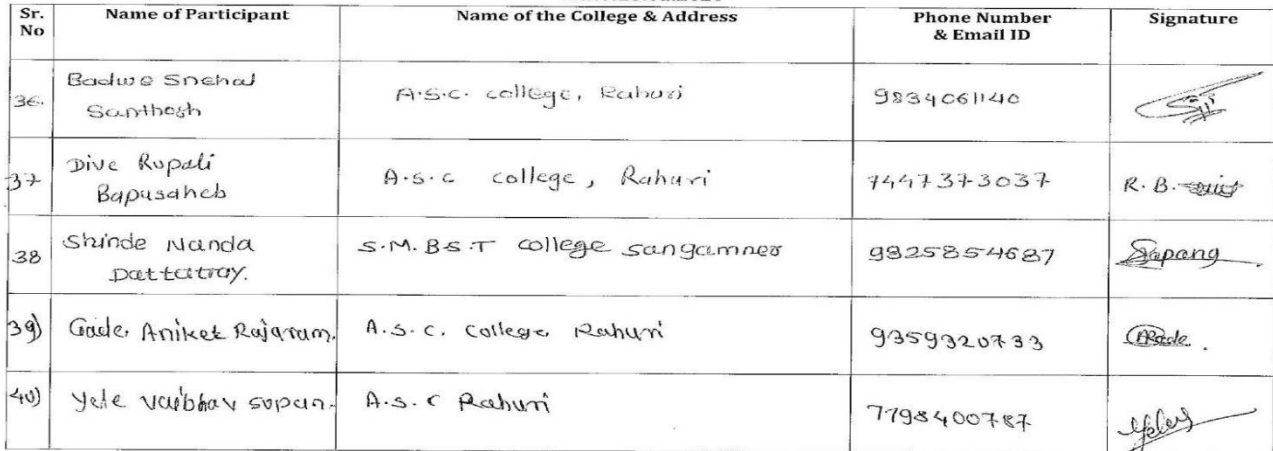 Sr. No Name of Participant Name of the College & Address Phone Number & Email ID Signature
36. Badwe Snehal Santhosh A.S.C. college, Rahuri 9834061140
37 Dive Rupali Bapusaheb A.S.C college, Rahuri 7447373037 R. B.
38 Shinde Nanda Dattatray. S.M.BS.T college sangamner 9325854687
39) Gade Aniket Rajaram. A.S.C. College Rahuri 9359320733
40) Yele vaibhav sopan. A.S.C Rahuri 7798400787